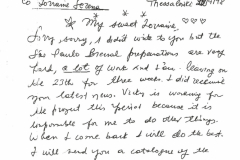 to Lorraine Thessaloniki
My sweet Lorraine,
Sorry, sorry, I didn't write to you but the
São Paulo Biennal preparations are very
hard, a lot of work and I am leaving on
the 23th for three weeks. I did receive
your latest news. Vicky is working for
the project this period because it is
impossible for me to do other things.
When I come back I will do the best.
I will send you a catalogue of the